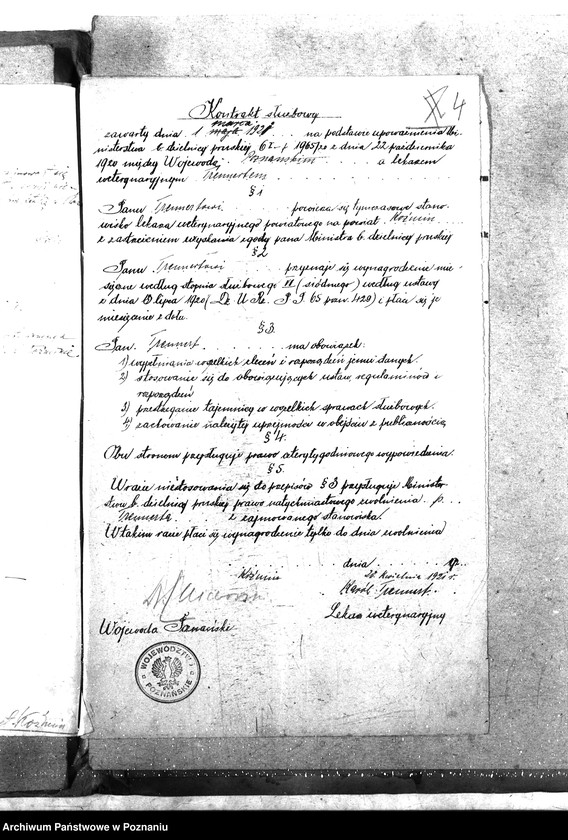 4
Kontrakt służbowy
marca
zawarty dnia 1 maja 1921 na podstawie upoważnienia Mi-
nisterstwa b. dzielnicy pruskiej 1965/20 z dnia 22 października
1920 między Wojewodą Poznańskim a lekarzem
weterynaryjnym Trennertem
§ 1
Panu Trennertowi powierza się tymczasowe stano-
wisko lekarza weterynaryjnego powiatowego na powiat Koźmin
z zastrzeżeniem uzyskania zgody pana Ministra b. dzielnicy pruskiej
§ 2
Panu Trennertowi przyznaje się wynagrodzenie mie-
sięczne według stopnia służbowego VII (siódmego) według ustawy
z dnia 13 lipca 1920 (Dz. U. Rz. P. P. 65 poz. 429) i płaci się je
miesięcznie z dołu.
§ 3.
Pan Trennert. ma obowiązek:
1) wypełniania wszelkich zleceń i rozporządzeń jemu danych.
2) stosowanie się do obowiązujących ustaw, regulaminów i
rozporządzeń
3) przestrzeganie tajemnicy w wszelkich sprawach służbowych.
4) zachowanie należytej uprzejmości w obejściu z publicznością
§ 4.
Obu stronom przysługuje prawo czterytygodniowego wypowiedzenia.
§ 5.
W razie niestosowania się do przepisów § 3 przysługuje Minister-
stwu b. dzielnicy pruskiej prawo natychmiastowego zwolnienia p.
Trennerta. z zajmowanego stanowiska.
W takim razie płaci się wynagrodzenie tylko do dnia zwolnienia
dnia
Koźmin 26 kwietnia 1921 r.
Karól Trennert.
Wojewoda Poznański
Lekarz weterynaryjny
WOJEWÓDZTWO
POZNAŃSKIE
Koźmin
Archiwum Państwowe w Poznaniu